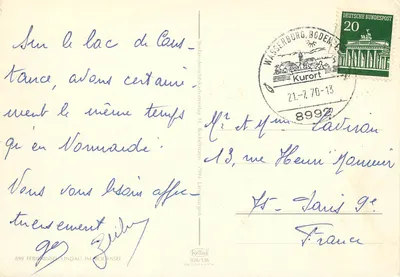 Sur le lac de Cons-
tance, avons certaine-
ment le même temps
qu'en Normandie.
Vous vous baisen affec-
tueusement
WASSERBURG, BODENSEE
Kurort
21.-7.70-13
8992
DEUTSCHE BUNDESPOST
20
Mr et Mme
13, rue Henri Monnier
75- Paris 9e.
France